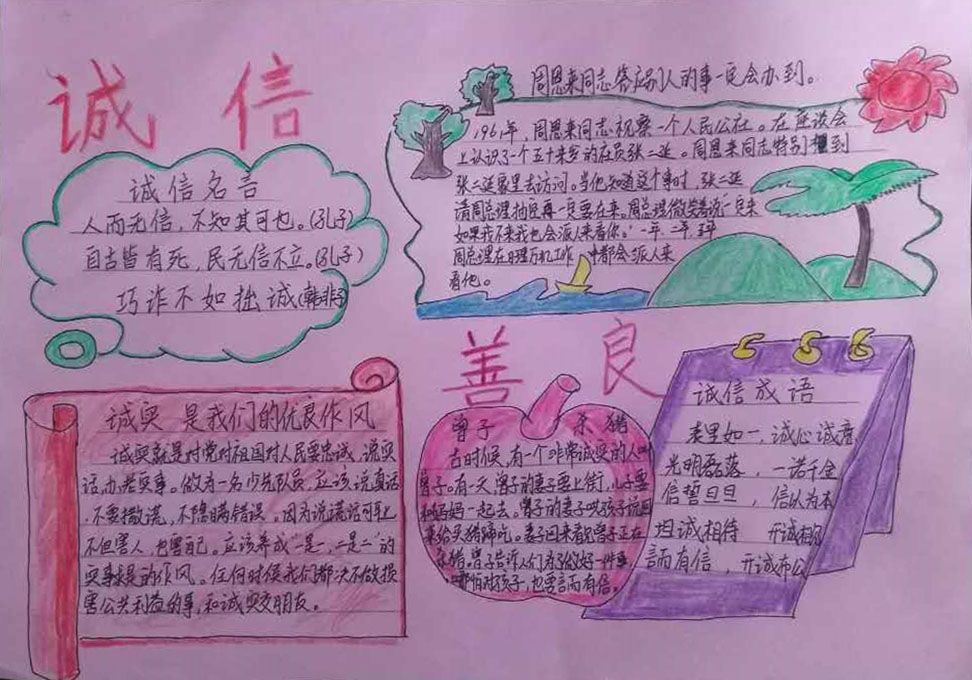 诚信
诚信名言
人而无信，不知其可也。(孔子)
自古皆有死，民无信不立。(孔子)
巧诈不如拙诚(韩非子)
周恩来同志答应别人的事一定会办到。
1961年，周恩来同志视察一个人民公社。在座谈会
上认识了一个五十来岁的社员张二廷。周恩来同志特别提到
张二廷家里去访问。当他知道这个事时，张二廷
请周总理抽空再一定要在来。周总理微笑着说一定来
如果我不来我也会派人来看你。一年、二年、三年
周总理在日理万机工作，都会派人来
看他。
善良
诚实是我们的优良作风
诚实就是对党对祖国对人民要忠诚，说实
话，办老实事。做为一名少先队员，应该说真话
，不要撒谎，不隐瞒错误。因为说谎话可耻
不但害人，也害自己。应该养成“一是一，二是二”的
实事求是的作风。任何时候我们都决不做损
害公共利益的事，和诚实交朋友。
曾子 杀猪
古时候，有一个非常诚实的人叫
曾子。有一天曾子的妻子要上街，儿子要
和妈妈一起去。曾子的妻子哄孩子说回
来给买猪蹄吃。妻子回来看见曾子正在
杀猪。曾子告诉人们为了做好一件事，
哪怕对孩子，也要言而有信。
诚信成语
表里如一，诚心诚意
光明磊落，一诺千金
信誓旦旦，信以为本
坦诚相待 开诚相
言而有信，开诚布公